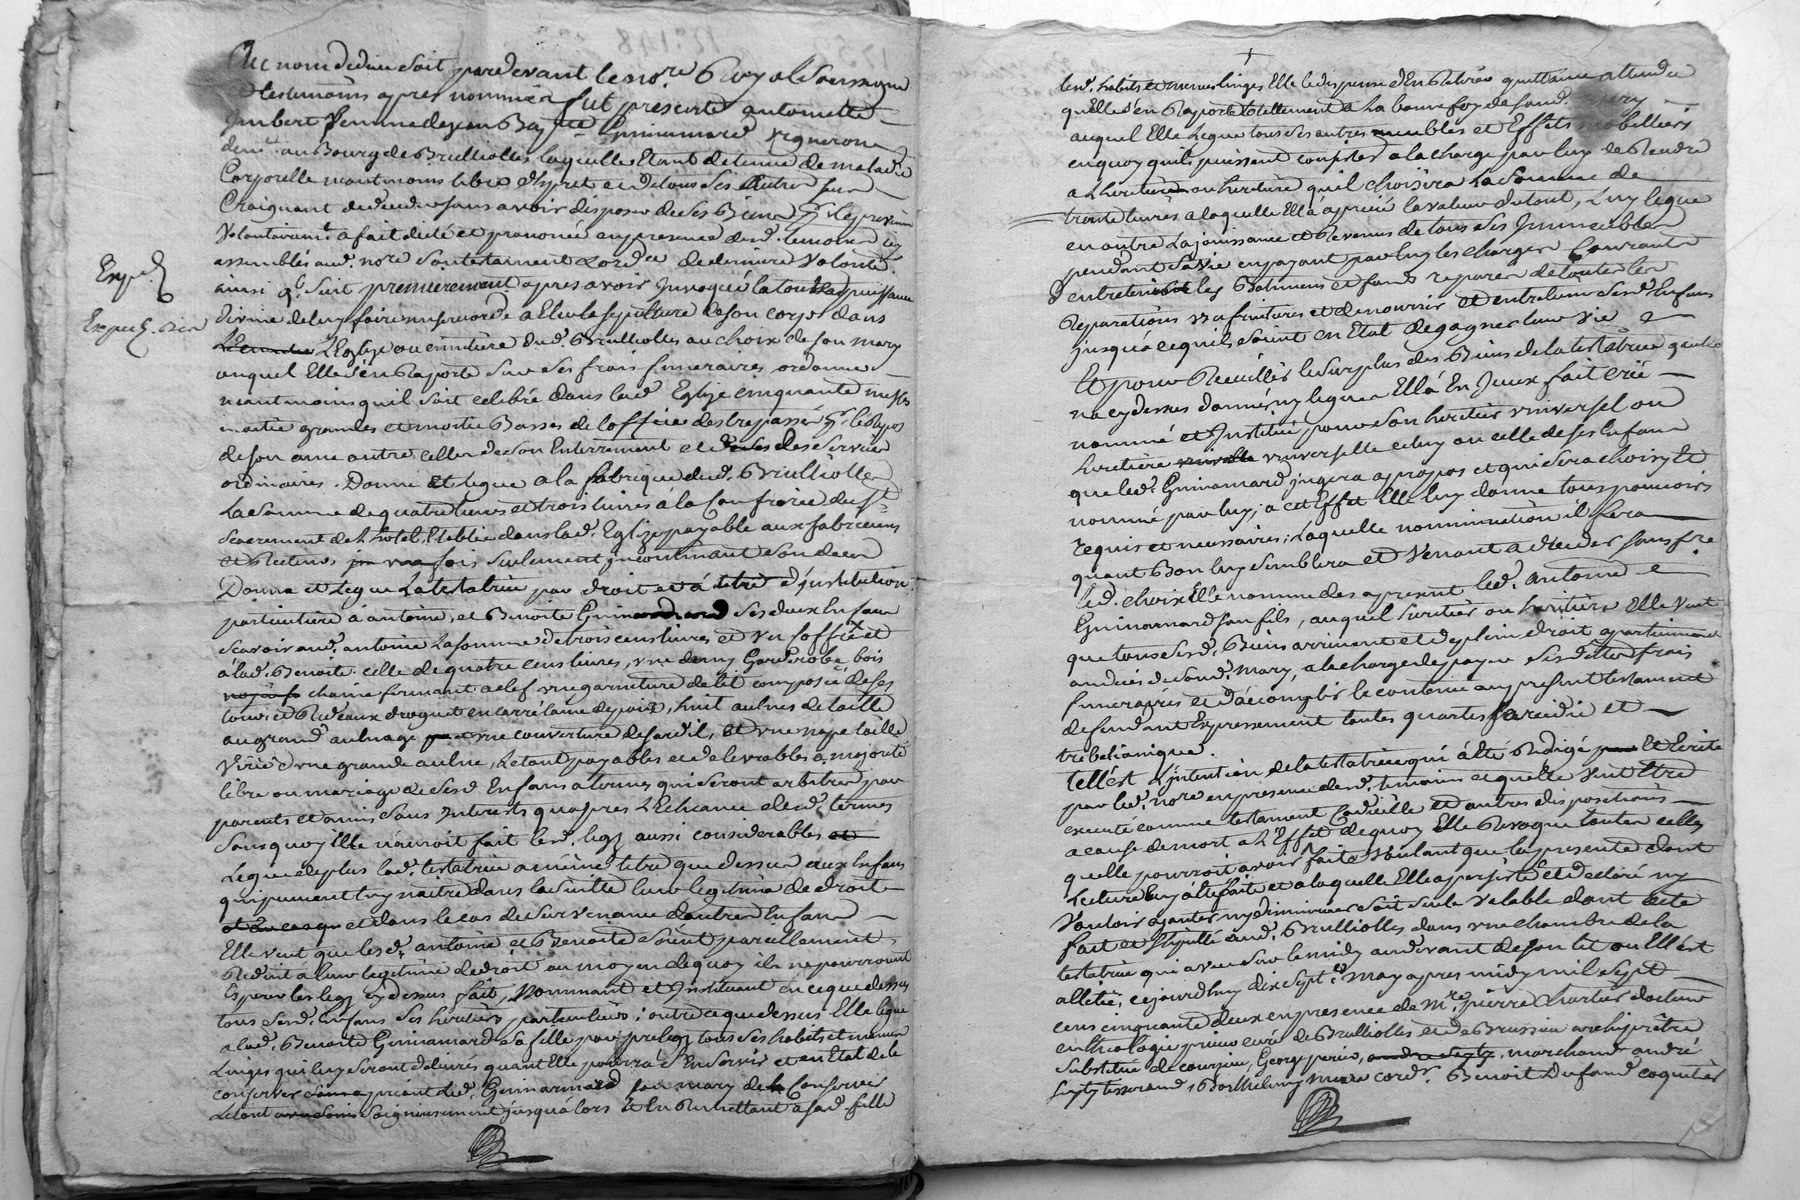 Au nom de dieu soit pardevant le no.re Royal soussigne
& tesmoins apres nommés fut presente antoinette
Imbert femme de jean Guinamard vigneron
dem.t au Bourg de Brullioles laquelle Etant detenue de maladie
Corporelle neantmoins libre d'Esprit et de tous ses autres sens
Craignant de deceder sans avoir disposé de ses Biens p.r le prevenir
Volontairem.t a fait dicté et prononcé en presence desd. temoins icy
assemblés aud. no.re son testament & ord.ce de derniere Volonté
ainsi q.l suit premierement apres avoir Invoqué la toute puissance
divine de luy faire misericorde a Elu la sepulture de son corps dans
L'Eglise ou cimitiere dud. Brullioles au choix de son mary
auquel Elle s'En Raporte sur ses frais funeraires, ordonne
neantmoins quil soit celebré dans lad. Eglise cinquante messes
moitié grandes et moitié Basses de l'office des trepassés p.r le Repos
de son ame outre celles de son Enterrement et des services
ordinaires. Donne et legue a la fabrique dud. Brullioles
La somme de quatre livres et trois livres a la Confrairie du S.t
Sacrement de l'hotel, Etablie dans lad. Eglise payable aux fabriciens
et Recteurs fois seulement incontinant son deces
Donne et Legue La testatrice par droit et a titre d'institution
particuliere à antoine, et Benoite Guinamard ses deux Enfans
Scavoir aud. antoine La somme de trois cens livres et un coffre et
à lad. Benoite celle de quatre cens livres, une demy Garderobe bois
chaine fermant a clef une garniture de lit composée de ses
tours et Rideaux droguet en carré laine de pays, huit aulnes de toille
au grand aulnage une couverture de sardil, et une nape toille
d'une grande aulne, Letout payables et delivrables a majorité
libre ou mariage de sesd. Enfans a termes qui seront arbitrés par
parents et amis sans Interets qu'apres L'Echeance desd. termes
Sans quoy Elle n'auroit fait lesd. legs aussi considerables
Legue de plus lad. testatrice a même titre que dessus aux Enfans
qui peuvent luy naitre dans la suitte leur legitime de droit
et dans le cas de survenance d'autres Enfans
Elle veut que lesd. antoine et Benoite soient pareillement
Reduit à leur legitime de droit au moyen de quoy ils ne pourront
Esperer les legs cy dessus fait, Nommant et Instituant en ce que dessus
tous sesd. Enfans ses heritiers particuliers; outre ce que dessus Elle legue
a lad. Benoite Guinamard sa fille par prelegs tous ses habits et menus
Linges qui luy seront delivrés quant Elle pourra s'En servir et en Etat de le
conserver priant led. Guinamard son mary de Conserver
Letout soigneusement jusqu'alors Et En Remettant a sad. fille
Exped.
Exped.
lesd. habits et menus linges Elle le dispense d'En Retirer quittance attendu
qu'Elle s'En Raporte totallement à La bonne foy de sond. mary
auquel Elle Legue tous ses autres meubles et Effets mobilliers
en quoy qu'ils puissent consister a la charge par luy de Rendre
a L'heritier ou heritiere qu'il choisira La somme de
trente livres a laquelle Ell'a aprecié la valeur du tout, Luy legue
en outre La jouissance et Revenus de tous ses Immeubles
pendant sa vie en payant par luy les charges Courantes
d'entretenir les Batimens et fonds reparer de toutes les
Reparations usufruitieres et de nourrir et entretenir sesd. Enfans
jusqu'a ce qu'ils soient en Etat de gagner leur vie
Et pour Recueillir le surplus des Biens de la testatrice quelle
na cy dessus donné, ny legué Ell'a En Iceux fait créé
nommé et Institué, pour son heritier universel ou
heritiere universelle celuy ou celle de ses Enfans
que led. Guinamard jugera a propos et qui sera choisy Et
nommé par luy, a cet Effet Elle luy donne tous pouvoirs
requis et necessaires; Laquelle nommination il fera
quant Bon luy semblera et Venant a deceder sans fre
led. choix Elle nomme des apresent led. Antoine
Guinamard son fils, auquel heritier ou heritiere Elle veut
que tous sesd. Biens arrivent et de plein droit apartiennent
au deces de sond. mary, a la charge de payer ses dettes frais
funeraires et d'acomplir le contenu au present testament
defendant Expressement toutes quartes falcidie et
trebelianique.
telle est L'intention de la testatrice qui à Eté Redigé Et Ecrite
par led. no.re en presence desd. temoins et quelle veut Etre
executé comme testament Codicille et autres dispositions
a cause de mort a L'Effet de quoy Elle Revoque toutes celles
quelle pourroit avoir faite Voulant que la presente dont
Lecture luy à Eté faite et a laquelle Elle a persisté et declaré ny
Vouloir ajouter ny diminuer soit seule Valable dont acte
fait et stipullé aud. Brullioles dans une chambre de la
testatrice qui a veu sur le midy au devant de son lit ou Ell'est
allitée, cejourd'huy dix sept.e may apres midy mil sept
cens cinquante deux en presence de M.re pierre Chartier docteur
en theologie prieur curé de Brullioles et de Brussieu archiprêtre
Substitué de courzieu, George perier, marchand andré
tisserand, Barthelemy cord.r Benoit Dufand coquetier